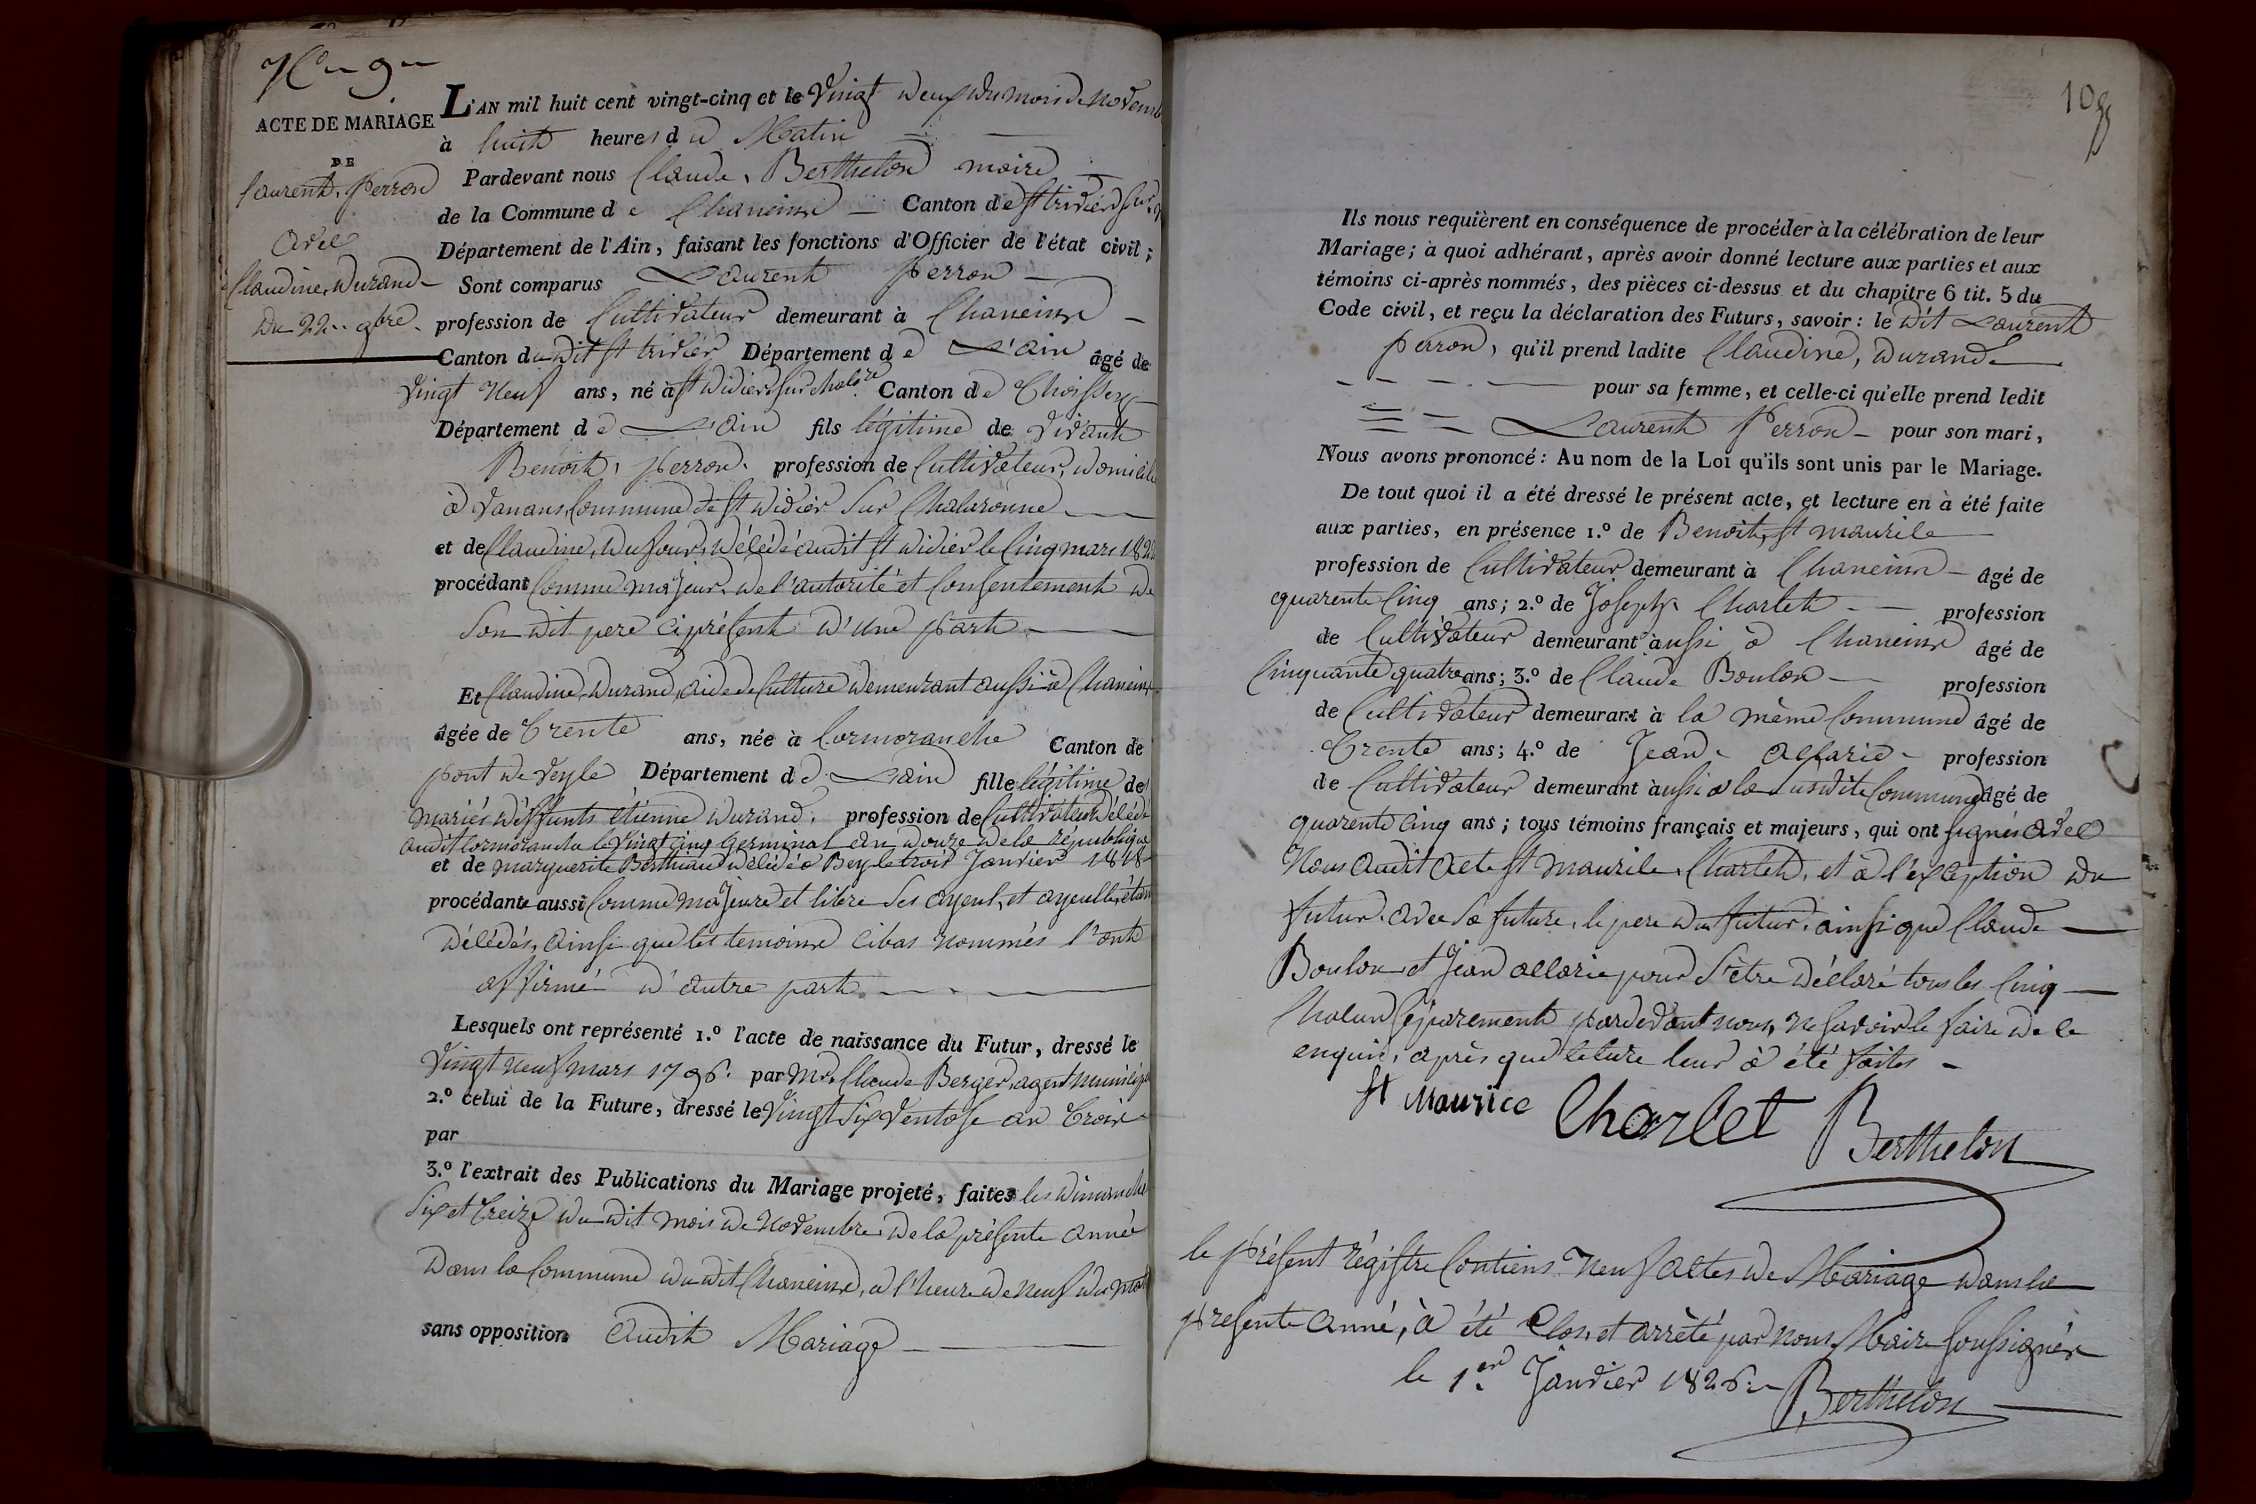 N.º 9.
ACTE DE MARIAGE
DE
Laurent, Perron
avec
Claudine, Durand
Du 22.. 9bre.
L'AN mil huit cent vingt-cinq et le Vingt deux du mois de novemb
à huit heures du Matin
Pardevant nous Claude, Berthelon maire
de la Commune de Chaneins Canton de st trivier sur
Département de l'Ain, faisant les fonctions d'Officier de l'état civil;
Sont comparus Laurent Perron
profession de Cultivateur demeurant à Chaneins
Canton du dit st trivier Département de L'ain âgé de
vingt Neuf ans, né à st Didier sur chalne Canton de Thoissey
Département de L'ain fils légitime de vivant
Benoit, perron. profession de Cultivateur, domicilié
à Vanans Commune de st didier sur Chalaronne
et de Claudine, dufour, décédé audit st didier le Cinq mars 182
procédant Comme majeur, de l'autorité et Consentement de
Son dit pere ci présent d'une part
Et Claudine, Durand, aide de Culture demeurant aussi à Chaneins
âgée de Trente ans, née à Cormoranche Canton de
pont de veyle Département de L'ain fille légitime de
mariés déffunts étienne durand, profession de Cultivateur décédé
audit Cormoranche le Vingt cinq Germinal an douze de la république
et de marguerite décédé à Bey le trois Janvier 1818
procédante aussi Comme majeure et libre ses ayeuls, et ayeulle, étan
décédés, ainsi que les temoins cibas nommés l'ont
affirmé d'autre part.
Lesquels ont représenté 1.º l'acte de naissance du Futur, dressé le
Vingt neuf mars 1796. par Mr. Claude Berger, agent municipa
2.º celui de la Future, dressé le vingt six ventose an Trois
par
3.º l'extrait des Publications du Mariage projeté, faites les dimanche
Six et treize du dit mois de Novembre de la présente année
dans la Commune du dit Chaneins, a l'heure de neuf du mat
sans opposition audit Mariage
Ils nous requièrent en conséquence de procéder à la célébration de leur
Mariage; à quoi adhérant, après avoir donné lecture aux parties et aux
témoins ci-après nommés, des pièces ci-dessus et du chapitre 6 tit. 5 du
Code civil, et reçu la déclaration des Futurs, savoir: le dit Laurent
perron, qu'il prend ladite Claudine, Durand
pour sa femme, et celle-ci qu'elle prend ledit
Laurent Perron pour son mari,
Nous avons prononcé: Au nom de la Loi qu'ils sont unis par le Mariage.
De tout quoi il a été dressé le présent acte, et lecture en à été faite
aux parties, en présence 1.º de Benoit, st maurile
profession de Cultivateur demeurant à Chaneins âgé de
quarente Cinq ans; 2.º de Joseph Charlet profession
de Cultivateur demeurant aussi à Chaneins âgé de
Cinquante quatre ans; 3.º de Claude Boulon profession
de Cultivateur demeurant à la même Commune âgé de
Trente ans; 4.º de Jean allarie profession
de Cultivateur demeurant aussi a la Susdite Commune âgé de
quarente Cinq ans; tous témoins français et majeurs, qui ont signés avec
Nous audit acte st maurile, Charlet, et à l'exception du
futur. avec sa future, le pere du futur. ainsi que Claude
Boulon et Jean allarie pour s'être déclaré tous les Cinq
Chacun Séparement pardevant nous, ne savoir le faire de ce
enquis, après que lecture leur à été faites
st Maurice Charlet Berthelon
le présent régistre Contiens Neuf actes de Mariage dans la
présente anné, à été Clos, et arrêté par nous Maire soussignés
le 1er Janvier 1826
Berthelon